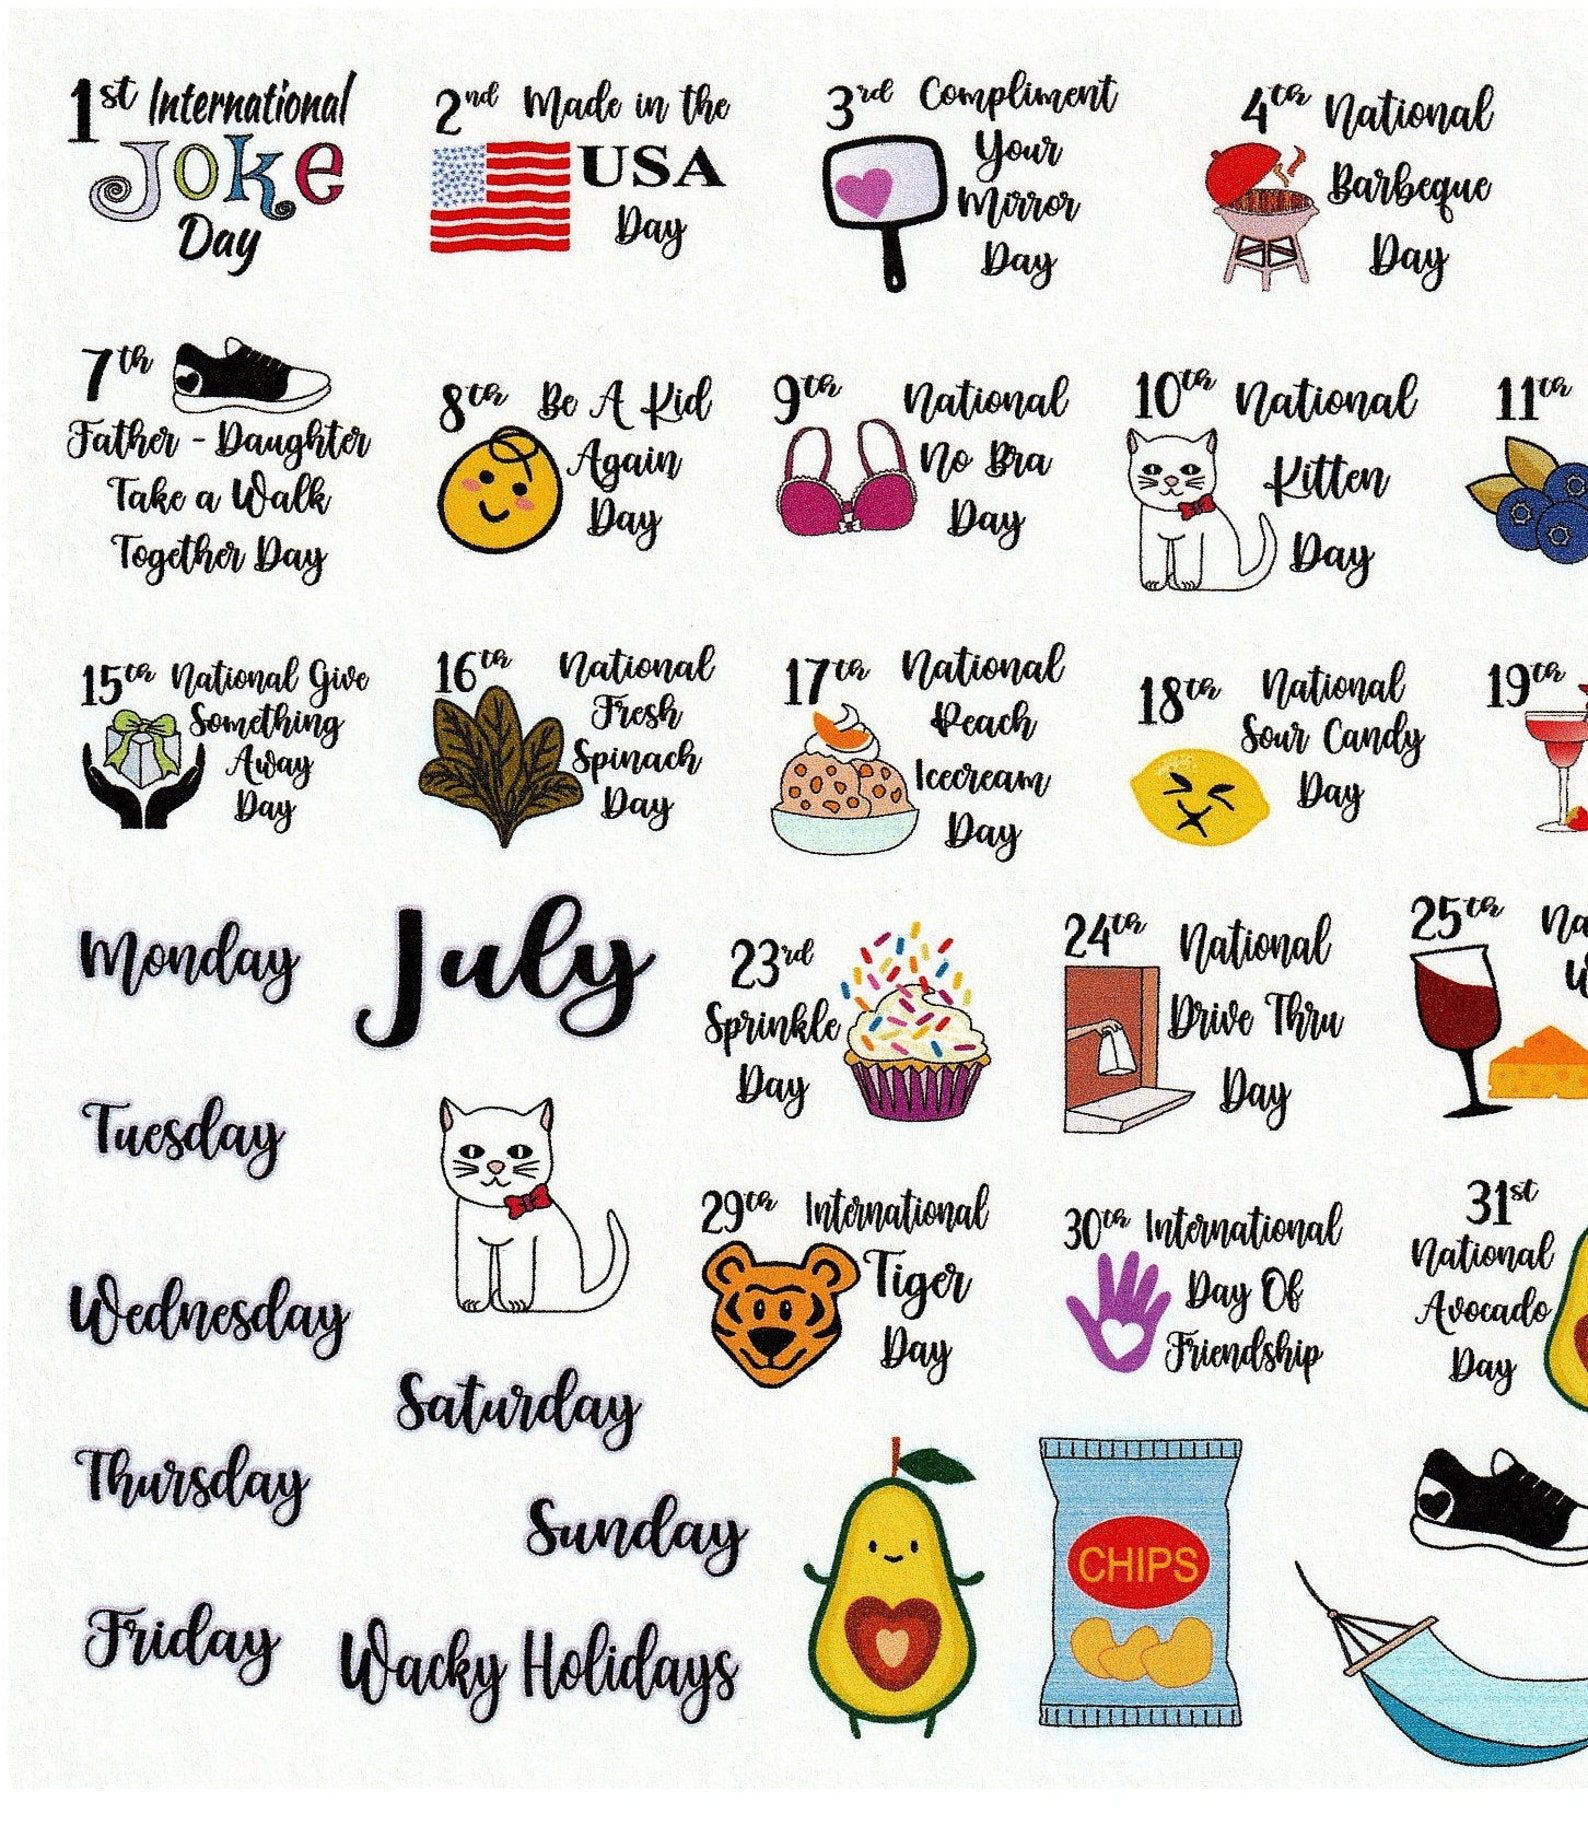 1st International
Joke
Day
2nd Made in the
USA
Day
3rd Compliment
Your
Mirror
Day
4th National
Barbeque
Day
7th
Father - Daughter
Take a Walk
Together Day
8th Be A Kid
Again
Day
9th National
No Bra
Day
10th National
Kitten
Day
11th
15th National Give
Something
Away
Day
16th National
Fresh
Spinach
Day
17th National
Peach
Icecream
Day
18th National
Sour Candy
Day
19th
Monday
July
23rd
Sprinkle
Day
24th National
Drive Thru
Day
25th Na
W
Tuesday
Wednesday
29th International
Tiger
Day
30th International
Day Of
Friendship
31st
National
Avocado
Day
Saturday
Thursday
Sunday
CHIPS
Friday
Wacky Holidays